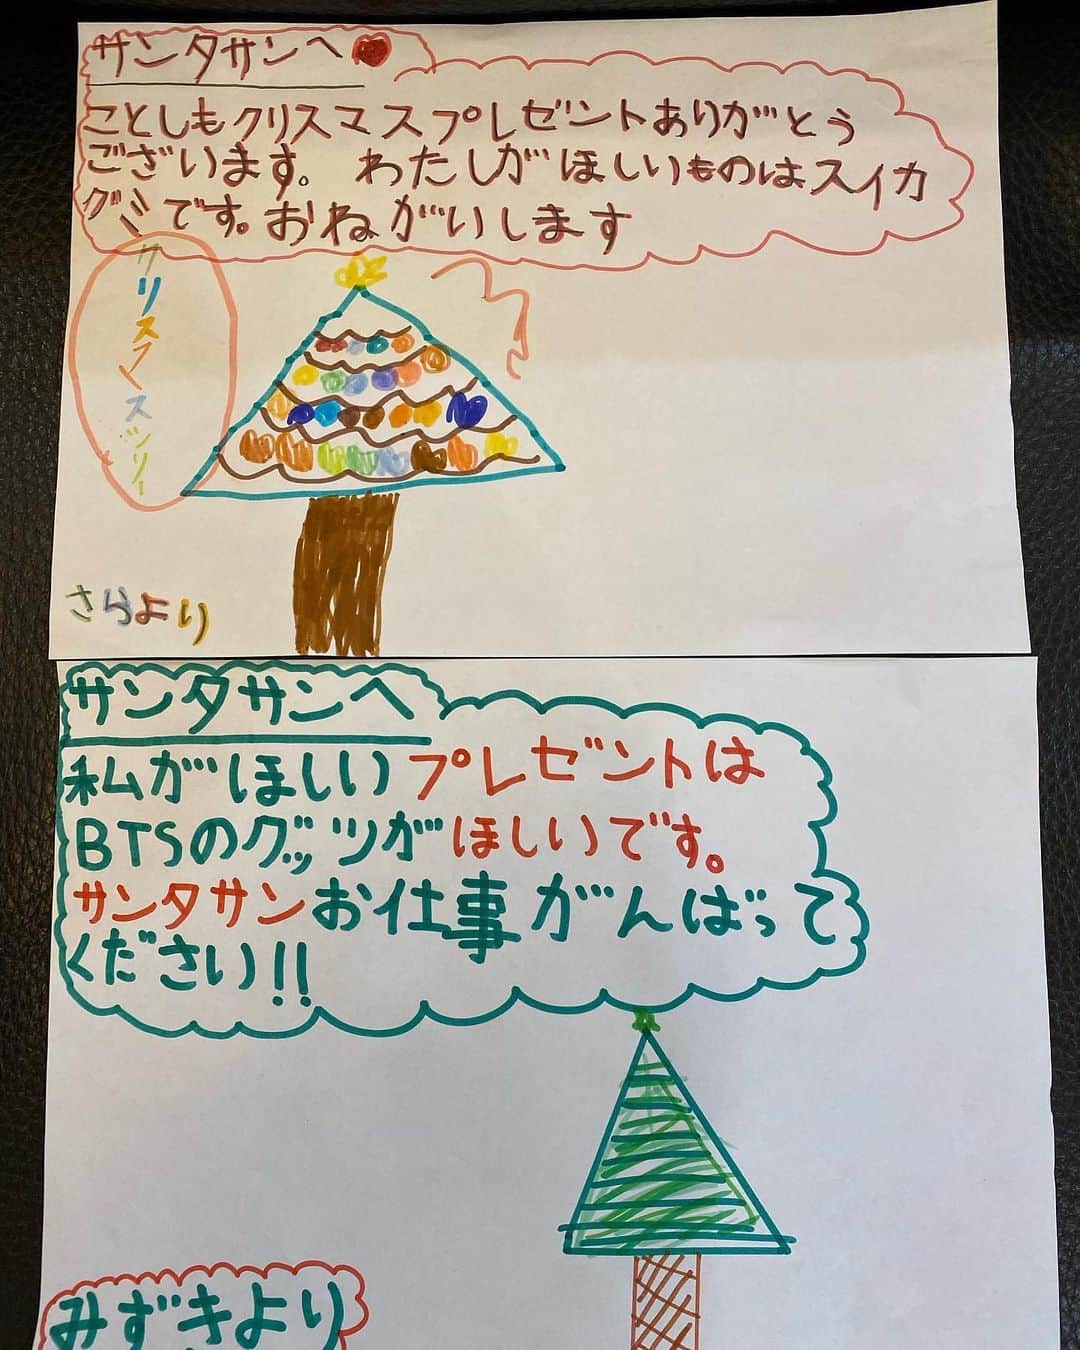 サンタサンへ
ことしもクリスマスプレゼントありがとう
ございます。 わたしがほしいものはスイカ
グミです。おねがいします
クリスマスツリー
さらより
サンタサンへ
私がほしいプレゼントは
BTSのグッツがほしいです。
サンタサンお仕事がんばって
ください!!
みずきより